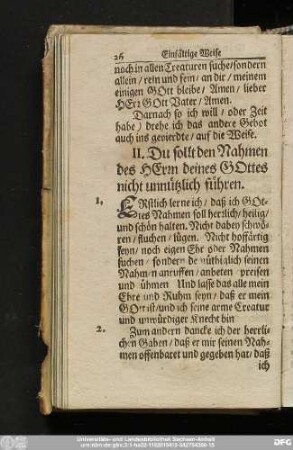 26 Einfältige Weise
noch in allen Creaturen suche/sondern
allein / rein und fein / an dir / meinem
einigen GOtt bleibe / Amen / lieber
HErr GOtt Vater / Amen.
Darnach so ich will / oder Zeit
habe / drehe ich das andere Gebot
auch ins gevierdte / auf die Weise.
II. Du sollt den Nahmen
des HErrn deines GOttes
nicht unnützlich führen.
1. ERstlich lerne ich / daß ich GOt-
tes Nahmen soll herrlich / heilig /
und schön halten. Nicht dabey schwö-
ren / fluchen / lügen. Nicht hoffärtig
seyn / noch eigen Ehr oder Nahmen
suchen / sondern demüthiglich seinen
Nahmen anruffen / anbeten preisen
und rühmen Und lasse das alle mein
Ehre und Ruhm seyn / daß er mein
GOtt ist / und ich seine arme Creatur
und unwürdiger Knecht bin
2. Zum andern dancke ich der herrli-
chen Gaben / daß er mir seinen Nah-
men offenbaret und gegeben hat / daß
ich
Universitäts- und Landesbibliothek Sachsen-Anhalt
DFG